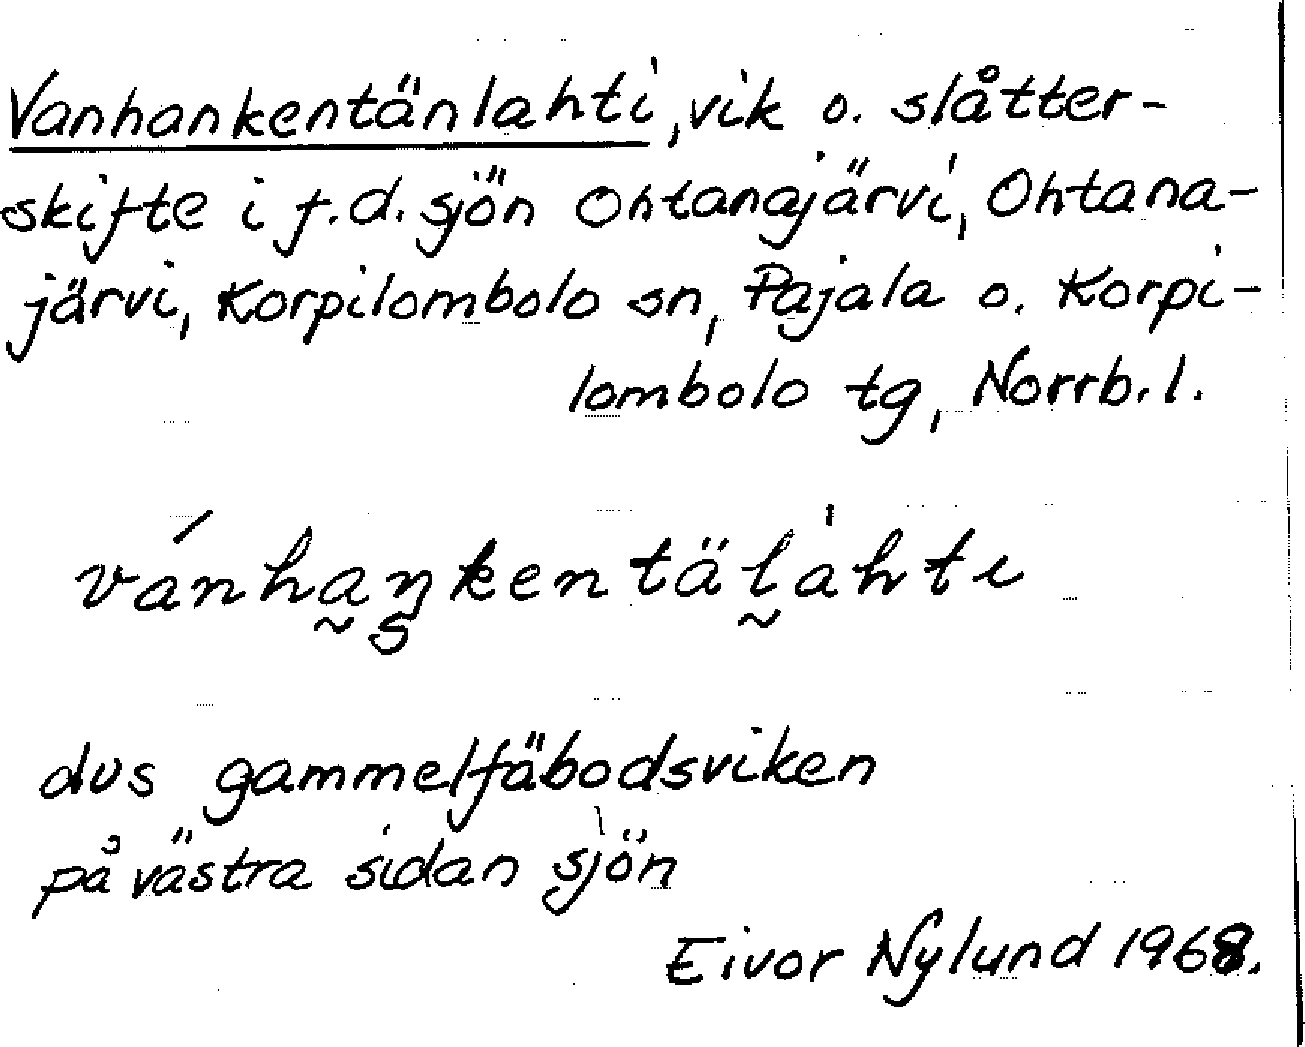 Vanhankentänlahti, vik o. slåtter-
skifte i f.d. sjön Ohtanajärvi, Ohtana-
järvi, Korpilombolo sn, Pajala o. Korpi-
lombolo tg, Norrb.l.
vánha̰ŋkentäl̰ȧhti
dvs gammelfäbodsviken
på västra sidan sjön
Eivor Nylund 1968.